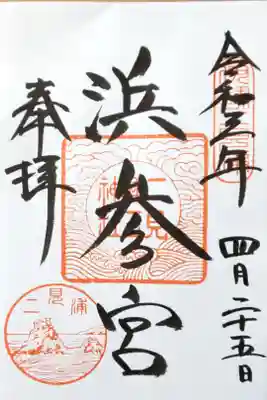 令和三年
四月二十五日
浜参宮
奉拝
二見浦